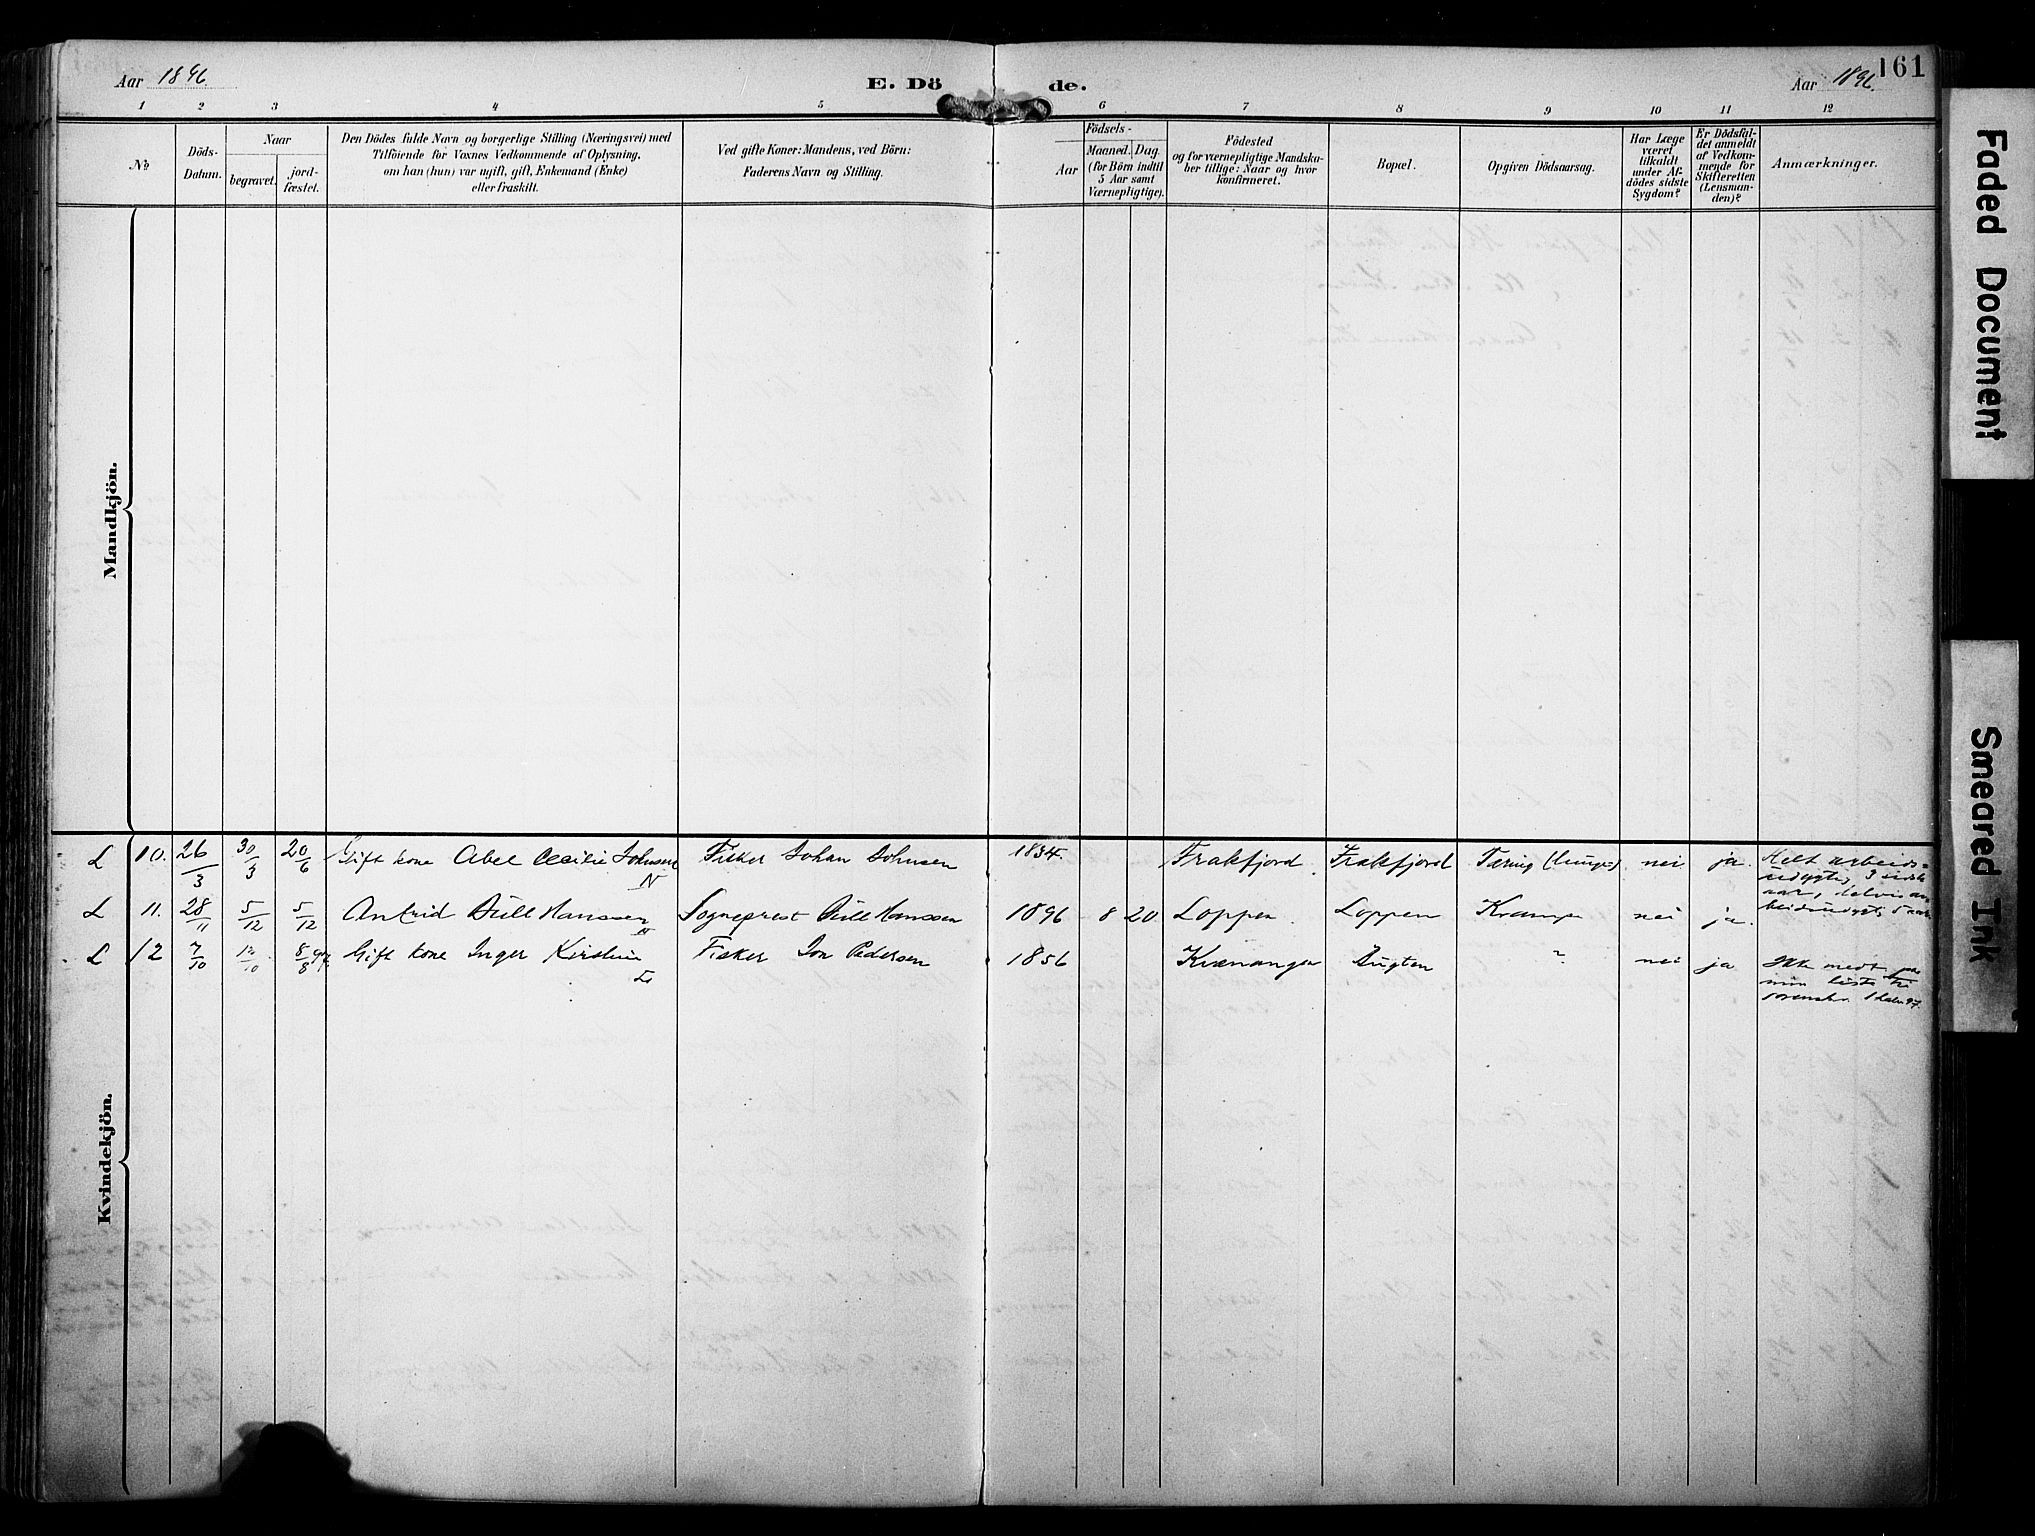 Aar 1896
E. Dö de.
Aar 1896.
161
1 2 3 4 5 6 7 8 9 10 11 12
No
Döds-
Datum.
Naar
begravet.
jord-
fæstet.
Den Dödes fulde Navn og borgerlige Stilling (Næringsvei) med
Tilföiende for Voxnes Vedkommende af Oplysning,
om han (hun) var ugift, gift, Enkemand (Enke)
eller fraskilt.
Ved gifte Koner: Mandens, ved Börn:
Faderens Navn og Stilling.
Födsels-
Aar
Maaned. Dag.
(for Börn indtil
5 Aar samt
Værnepligtige).
Födested
og for værnepligtige Mandska-
ber tillige: Naar og hvor
konfirmeret.
Bopæl.
Opgiven Dödsaarsag.
Har Læge
været
tilkaldt
under Af-
dödes sidste
Sygdom?
Er Dödsfal-
det anmeldt
af Vedkom-
mende for
Skifteretten
(Lensman-
den)?
Anmærkninger.
Mandkjön.
Kvindekjön.
L 10. 26/3 30/3 20/6 Gift kone Abel Cecilie Johnsen N Fisker Johan Johnsen 1834. Frakfjord. Frakfjord Tæring (lunge) nei ja. Helt arbeids-
udygtig 3 sidste
aar,
L 11. 28/11 5/12 5/12 Antrid Büll Hanssen N Sogneprest Büll Hanssen 1896 8 20. Loppen. Loppen Krampe nei ja.
L 12 7/10 /10 8/8 97. Gift kone Inger Kirstine Fisker Jon Pedersen 1856 Kvænangen " nei ja Ikke medt paa
min liste til
Faded Document
Smeared Ink